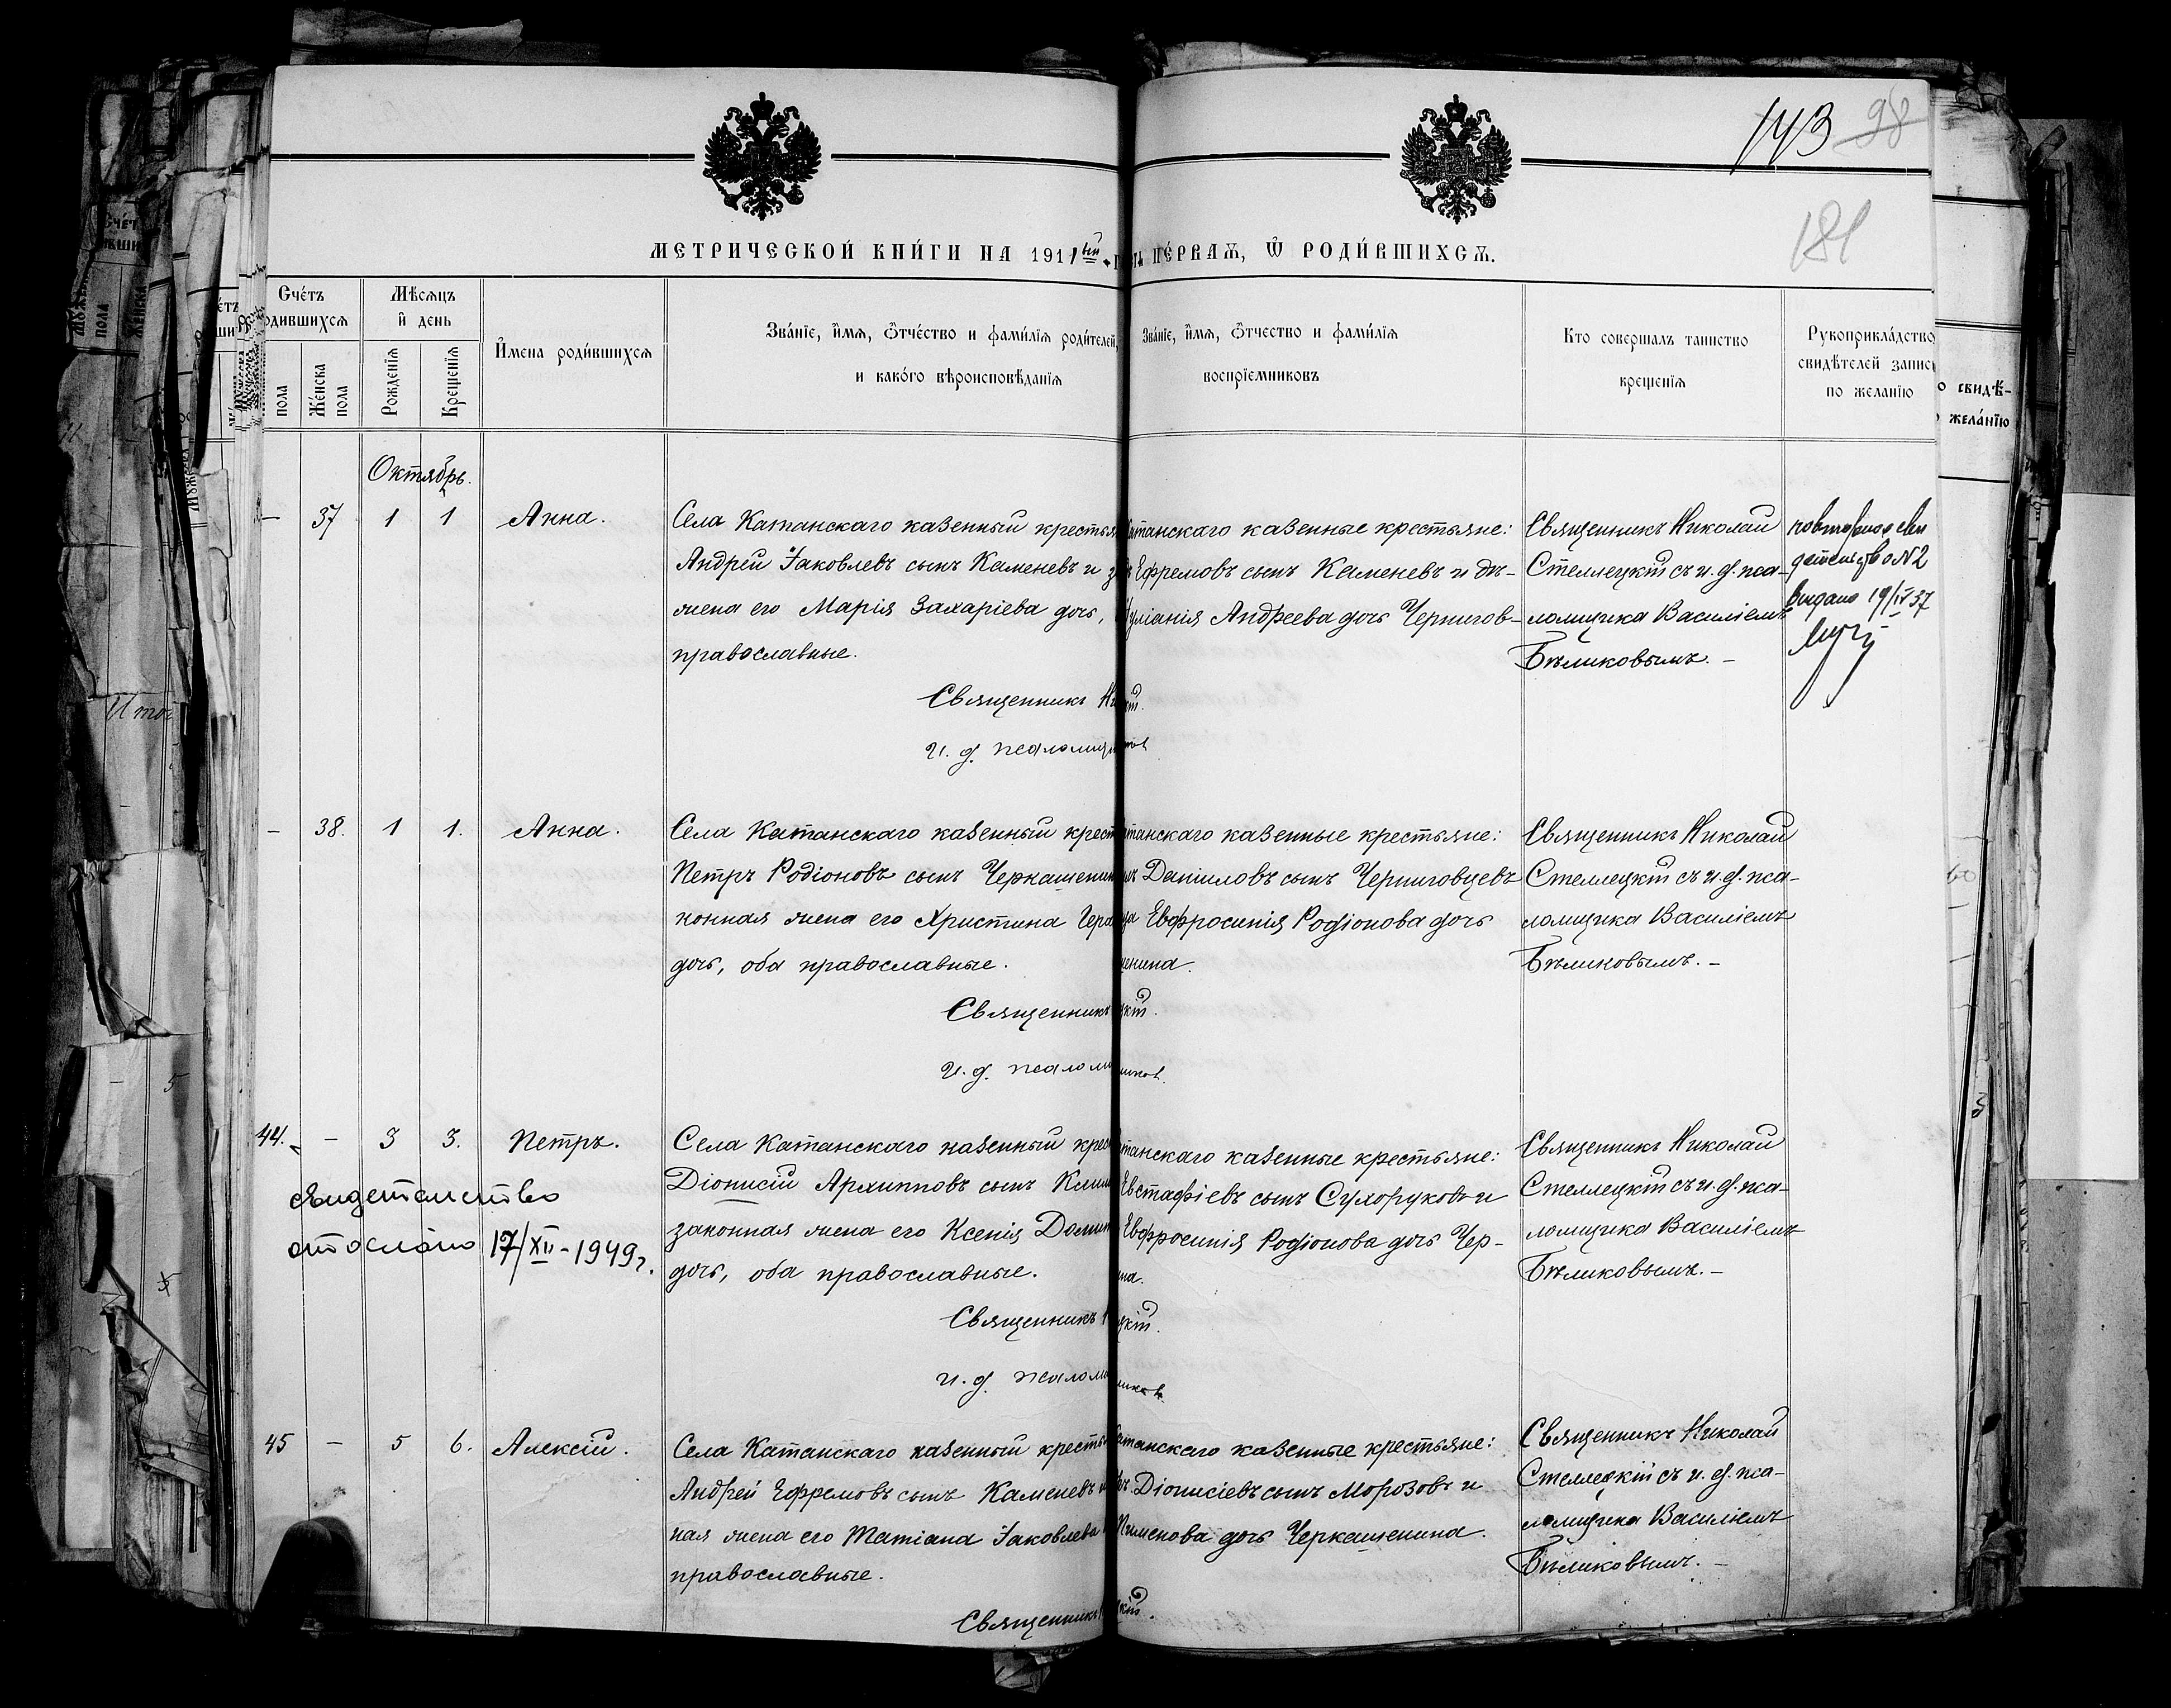 143 98
181
МЕТРИЧЕСКОЙ КНИ́ГИ НА 1911ый
ПЕ́РВАѦ, Ѿ РОДИ́ВШИХСѦ.
Сче́тъ
одившихсѧ
пола
Же́нска пола
Мѣсѧцъ
и҆ день
Рожденїѧ
Крещенїѧ
И҆мена роди́вшихсѧ
Зва́нїе, и҆́мѧ, ѻ҆́тче́ство и фами́лїѧ роди́телей,
и како́го вѣроисповѣ́данїѧ
Зва́нїе, и҆́мѧ, ѻ҆́тчество и фами́лїѧ
воспрїемниковъ
Кто совершалъ таинство
крещенїѧ
Рукоприкла́дство
свидѣтелей записи
по желанїю
Октябрь.
— 37 1 1 Анна.
Села Катанскаго казенный крестья
Андрей Іаковлевъ сынъ Каменевъ и з
жена его Марія Захаріева дочь,
православные.
Священникъ Ни
И. д. псаломщ
атанскаго казенные крестьяне:
Ефремовъ сынъ Каменевъ и дѣ-
уліанія Андреева дочь Чернигов-
Священникъ Николай
Стеллецкій съ и. д. пса-
ломщика Василіемъ
Бѣликовымъ. —
повторное сви
детельство N2
выдано 19/IV 37
— 38. 1 1. Анна.
Села Катанскаго казенный крест
Петръ Родіоновъ сынъ Черкашенин
конная жена его Христина Гера
дочь, оба православные.
Священникъ
И. д. псалом
танскаго казенные крестьяне:
Даніиловъ сынъ Черниговцевъ
ца Евфросинія Родіонова дочь
шенина.
цкій.
Священникъ Николай
Стеллецкій съ и. д. пса-
ломщика Василіемъ
Бѣликовымъ. —
44. — 3 3. Петръ.
свидетельство
отослано 17/XII-1949г.
Села Катанскаго казенный крес
Діонисій Архипповъ сынъ Клим
законная жена его Ксенія Домит
дочь, оба православные.
Священникъ
И. д. псалом
танскаго казенные крестьяне:
Евстафіевъ сынъ Сухоруковъ и
Евфросинія Родіонова дочь Чер-
на.
цкій.
Священникъ Николай
Стеллецкій съ и. д. пса-
ломщика Василіемъ
Бѣликовымъ. —
45 — 5 6. Алексій.
Села Катанскаго казенный кресть
Андрей Ефремовъ сынъ Каменевъ и
ная жена его Татіана Іаковлева
православные.
Священникъ
атанскаго казенные крестьяне:
Діонисіевъ сынъ Морозовъ и
Пименова дочь Черкашенина.
кій.
Священникъ Николай
Стеллецкій съ и. д. пса-
ломщика Василіемъ
Бѣликовымъ. —